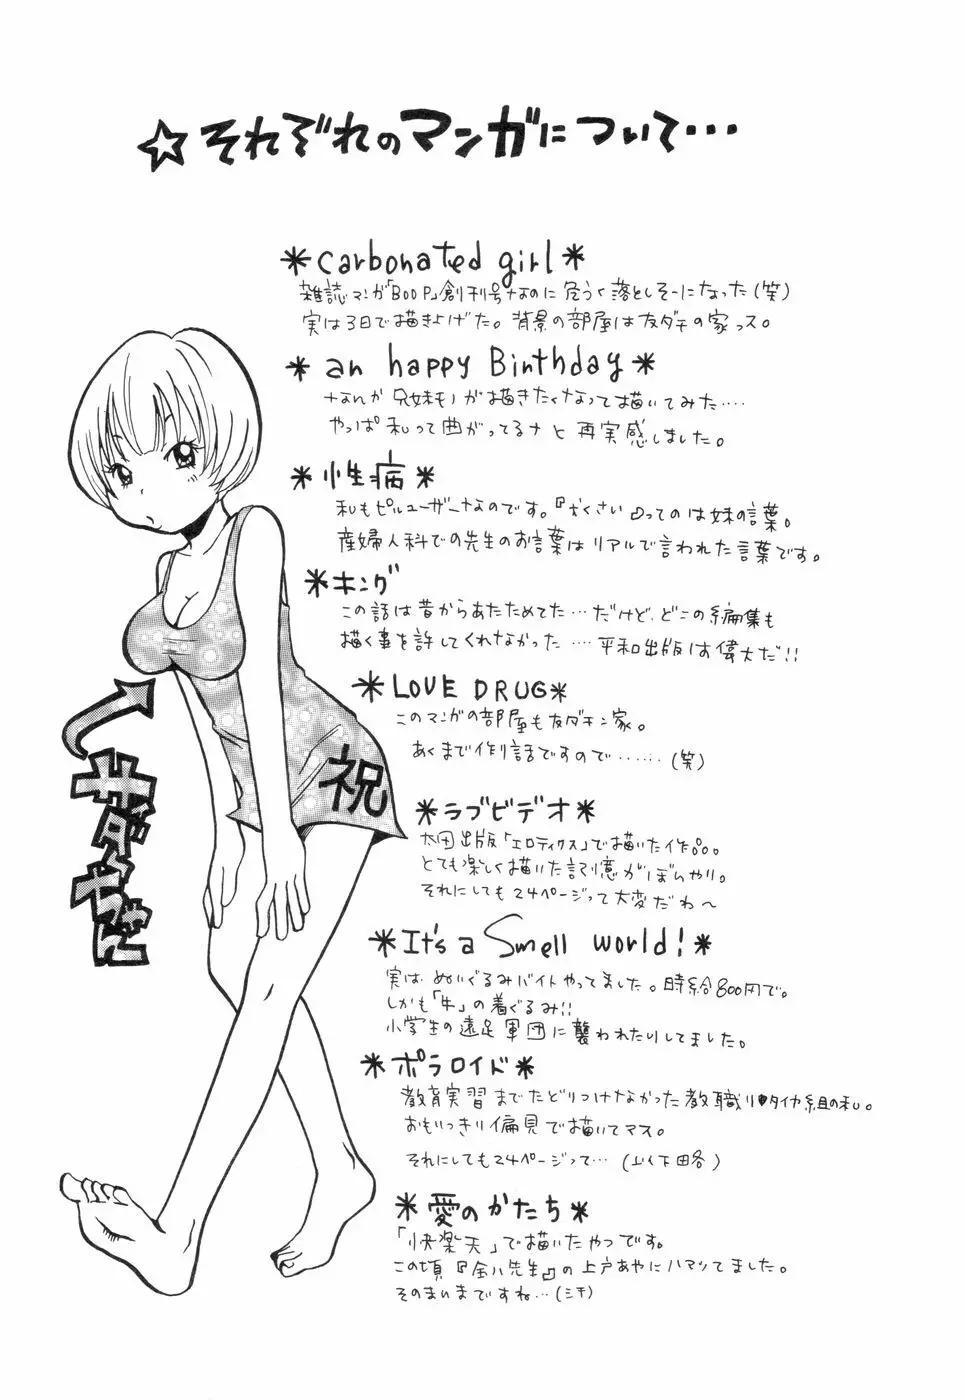 ☆それぞれのマンガについて・・・
＊carbonated girl＊
雑誌マンガ「BOOP」創刊号なのに危うく落としそーになった(笑)
実は3日で描きよげた。背景の部屋は友ダチの家っス。
＊an happy Birthday＊
なんか兄妹モノが描きたくなって描いてみた‥‥
やっぱ私って曲がってるナと再実感しました。
＊性病＊
私もピルユーザーなのです。『くさい』ってのは妹の言葉。
産婦人科での先生のお言葉はリアルで言われた言葉です。
＊キング
この話は昔からあたためてた‥‥だけど、どこの編集も
描く事を許してくれなかった‥‥平和出版は偉大だ!!
＊LOVE DRUG＊
このマンガの部屋も友ダチン家。
あくまで作り話ですので‥‥‥(笑)
＊ラブビデオ＊
太田出版「エロティクス」で描いた作品。
とても楽しく描いた記憶がぼんやり。
それにしても24ページって大変だわ〜
＊It's a Smell world!＊
実はぬいぐるみバイトやってました。時給800円で。
しかも「牛」の着ぐるみ!!
小学生の遠足軍団に襲われたりしてました。
＊ポラロイド＊
教育実習までたどりつけなかった教職リタイヤ組の私。
おもいっきり偏見で描いてマス。
それにしても24ページって‥‥(以下略)
＊愛のかたち＊
「快楽天」で描いたやつです。
この頃『金八先生』の上戸あやにハマってました。
そのまいまですね‥‥(ミキ)
祝
サダちゃん